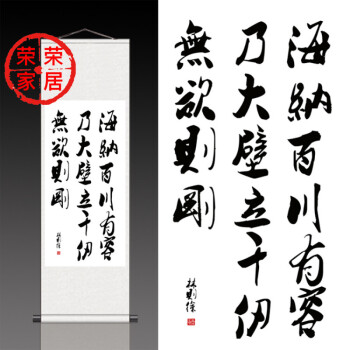 荣荣
家居
海納百川有容
乃大壁立千仞
無欲則剛
林則徐
海納百川有容
乃大壁立千仞
無欲則剛
林則徐